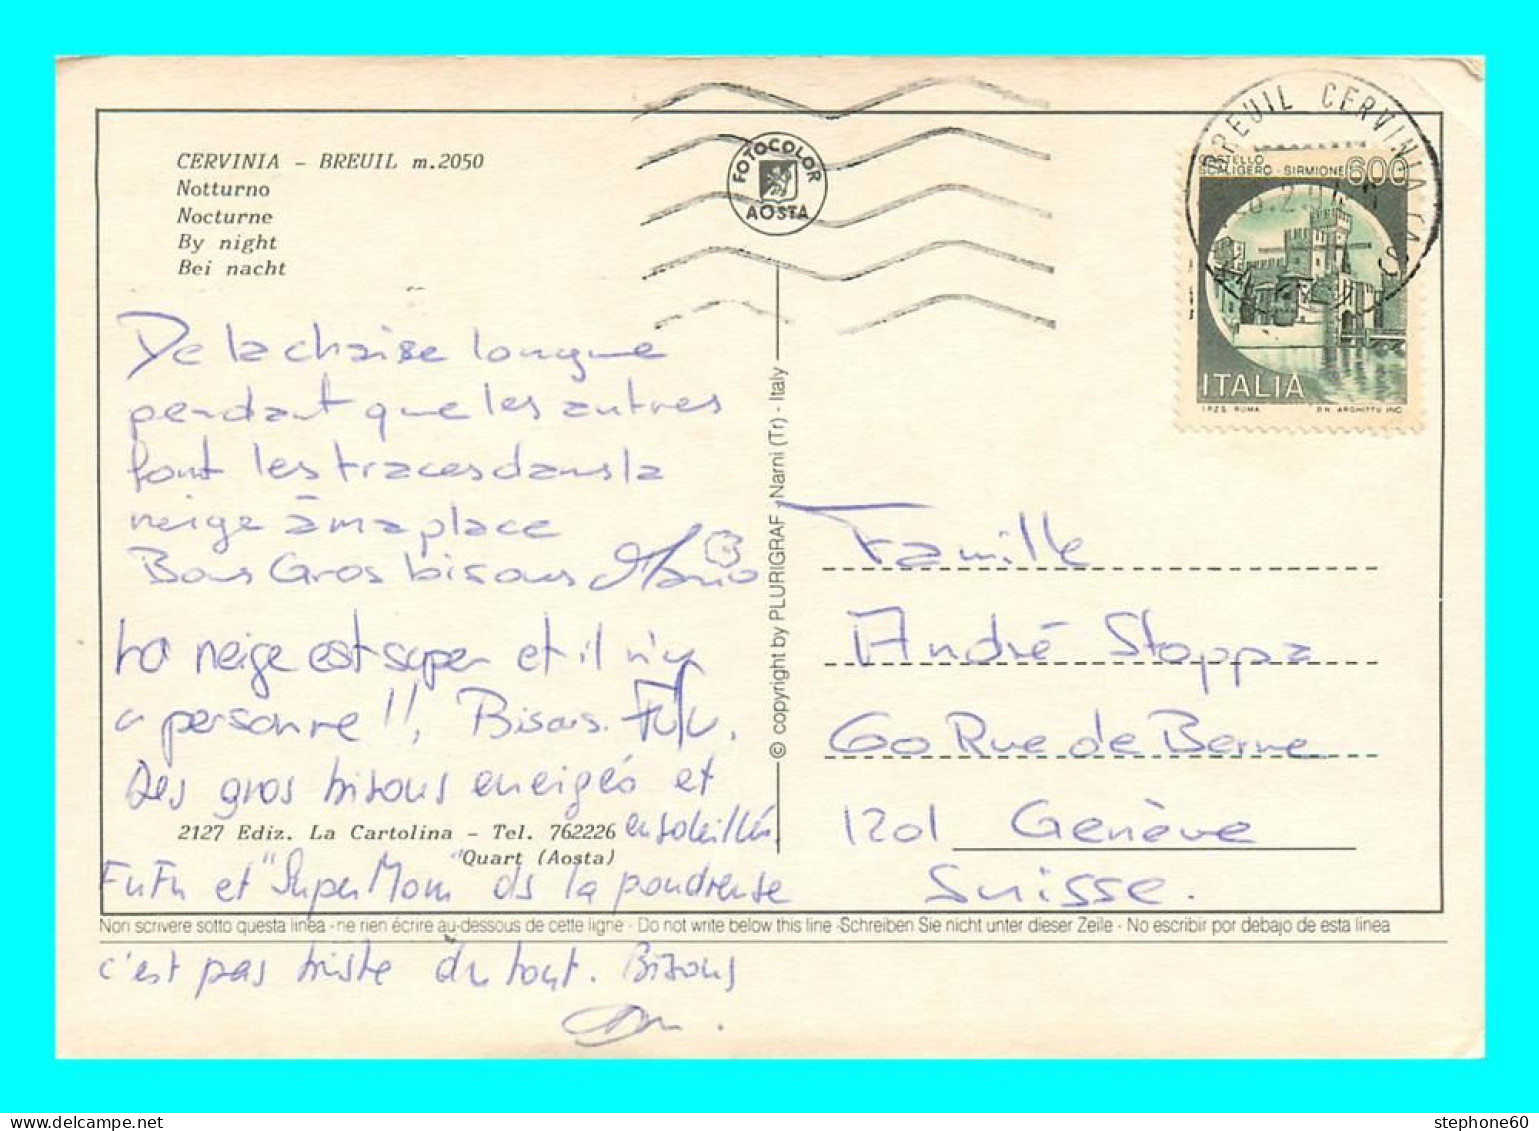 CERVINIA - BREUIL m.2050
Notturno
Nocturne
By night
Bei nacht
FOTOCOLOR
AOSTA
BREUIL CERVINIA
CASTELLO
SCALIGERO - SIRMIONE
600
ITALIA
I.P.Z.S. ROMA P.N. ARGHITTU INC.
De la chaise longue
pendant que les autres
font les traces dans la
neige à ma place
Bons Gros bisous Mario
La neige est super et il n'y
a personne !!, Bisous. Fufu.
Des gros bisous eneigés et
ensoleillés
2127 Ediz. La Cartolina - Tel. 762226
Quart (Aosta)
FuFu et "SuperMom" ds la poudreuse
c'est pas triste du tout. Bisous
© copyright by PLURIGRAF - Narni (Tr) - Italy
Famille
André Stoppa
60 Rue de Berne
1201 Genève
Suisse.
Non scrivere sotto questa linea - ne rien écrire au-dessous de cette ligne - Do not write below this line - Schreiben Sie nicht unter dieser Zeile - No escribir por debajo de esta linea
stephone60